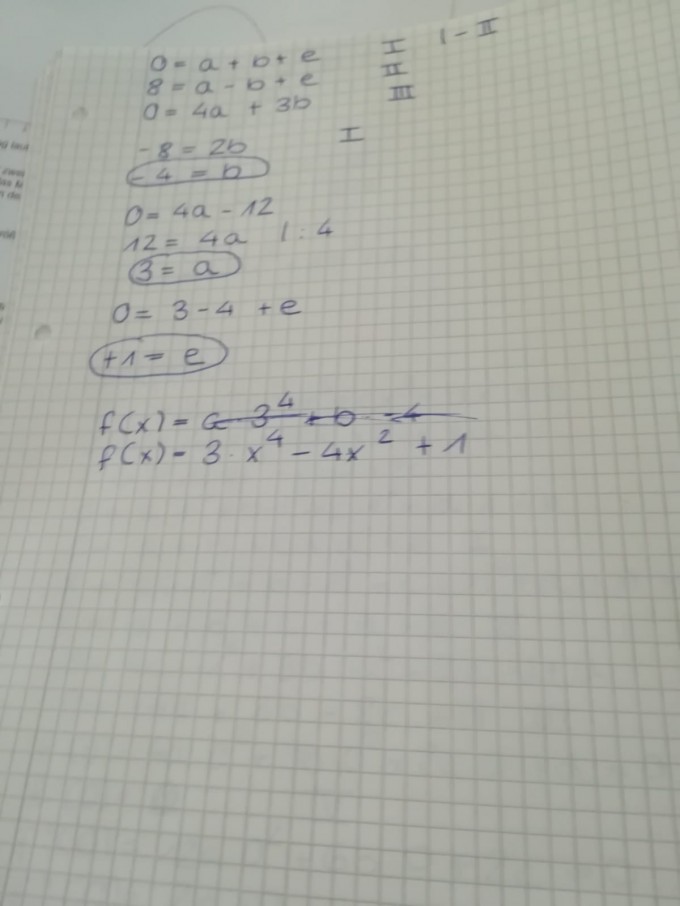 0 = a + b + e I | - II
8 = a - b + e II
0 = 4a + 3b III
-8 = 2b I
-4 = b
0 = 4a - 12
12 = 4a | : 4
3 = a
0 = 3 - 4 + e
+1 = e
f(x) =
f(x) = 3 · x⁴ - 4x² + 1